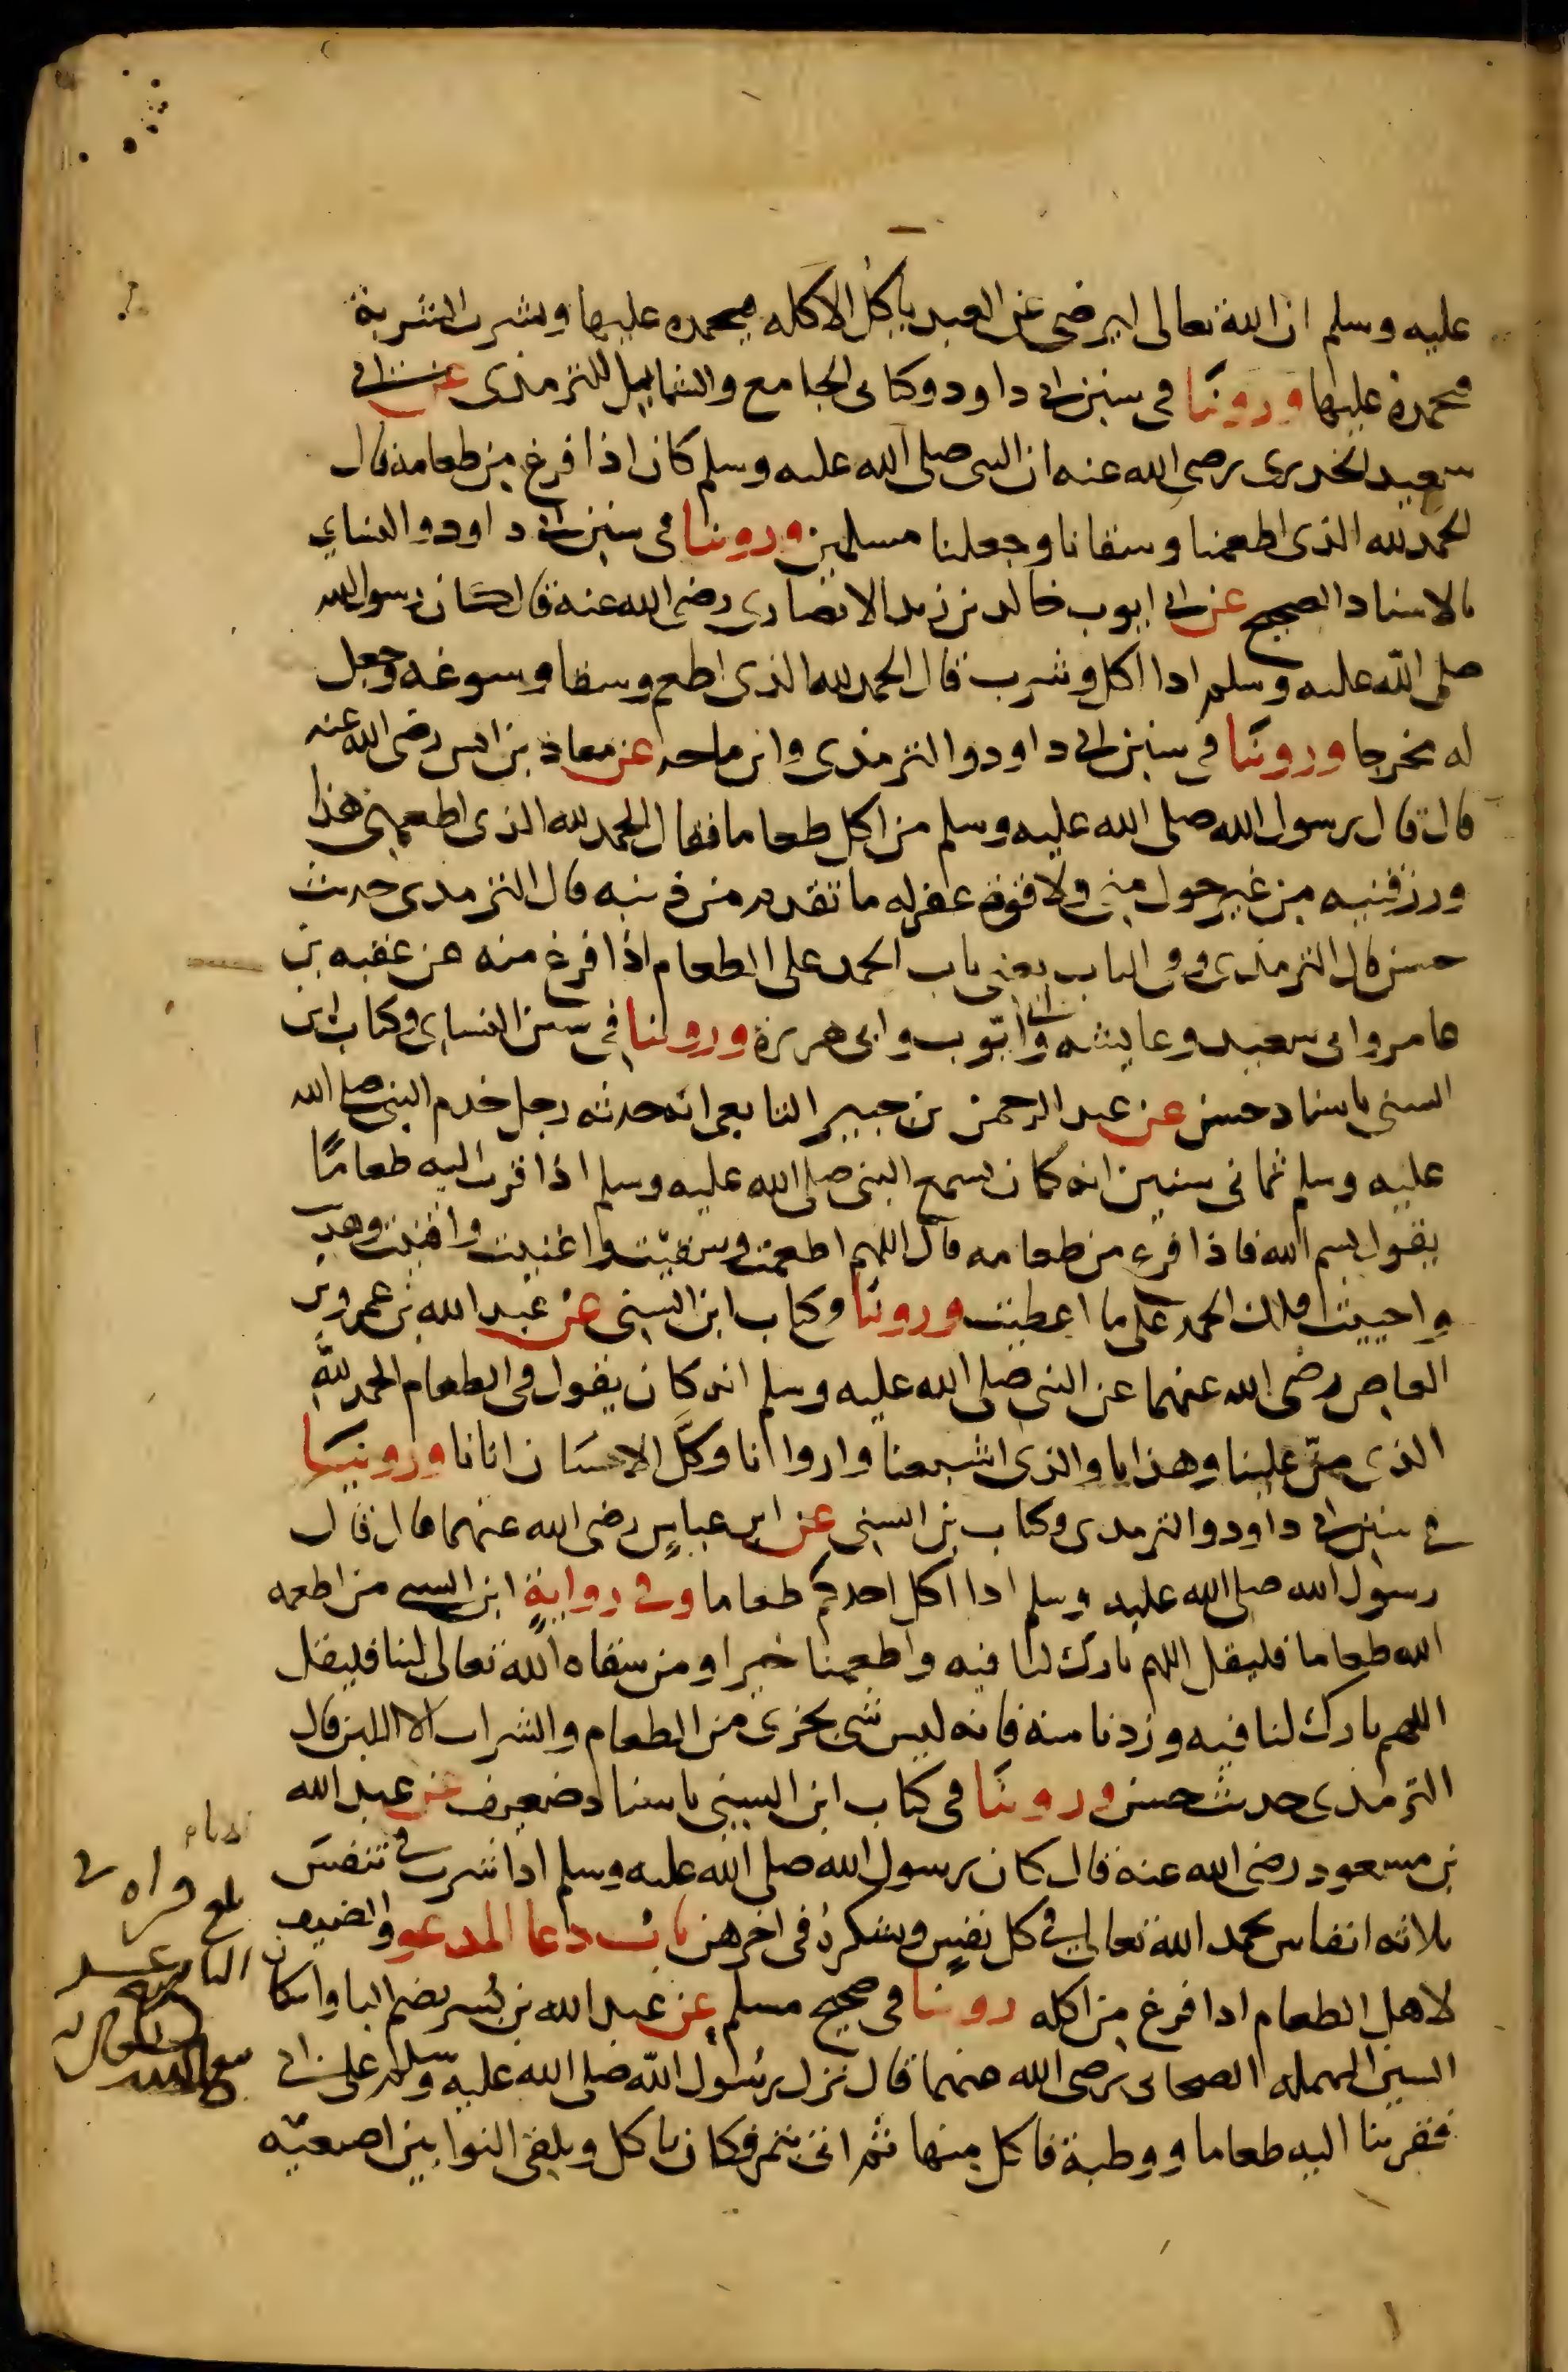 عليه وسلم ان الله تعالى ليرضى عن العبد ياكل الاكله فيحمده عليها ويشرب الشربة
فيحمده عليها وروينا في سنن ابي داود وكتابي الجامع والشمايل للترمذي عن ابي
سعيد الخدري رضي الله عنه ان النبي صلى الله عليه وسلم كان اذا فرغ من طعامه قال
الحمد لله الذي اطعمنا وسقانا وجعلنا مسلمين وروينا في سنن ابي داود والنساي
بالاسناد الصحيح عن ابي ايوب خالد بن زيد الانصاري رضي الله عنه قال كان رسول الله
صلى الله عليه وسلم اذا اكل وشرب قال الحمد لله الذي اطعم وسقا وسوغه وجعل
له مخرجا وروينا في سنن ابي داود والترمذي وابن ماجه عن معاذ بن انس رضي الله عنه
قال قال رسول الله صلى الله عليه وسلم من اكل طعاما فقال الحمد لله الذي اطعمني هذا
ورزقنيه من غير حول مني ولا قوة غفر له ما تقدم من ذنبه قال الترمذي حديث
حسن قال الترمذي وفي الباب يعني باب الحمد على الطعام اذا فرغ منه عن عقبه بن
عامر وابي سعيد وعايشه وابي ايوب وابي هريرة وروينا في سنن النساي وكتاب ابن
السني باسناد حسن عن عبد الرحمن بن جبير التابعي انه حدثه رجل خدم النبي صلى الله
عليه وسلم ثماني سنين انه كان يسمع النبي صلى الله عليه وسلم اذا قرب اليه طعاما
يقول بسم الله فاذا فرغ من طعامه قال اللهم اطعمت وسقيت واغنيت واقنيت وهديت
واحييت فلك الحمد على ما اعطيت وروينا في كتاب ابن السني عن عبد الله بن عمرو بن
العاص رضي الله عنهما عن النبي صلى الله عليه وسلم انه كان يقول في الطعام الحمد لله
الذي من علينا وهدانا والذي اشبعنا واروانا وكل الاحسان اتانا وروينا
في سنن ابي داود والترمذي وكتاب بن السني عن ابن عباس رضي الله عنهما قال قال
رسول الله صلى الله عليه وسلم اذا اكل احدكم طعاما وفي رواية ابن السني من اطعمه
الله طعاما فليقل اللهم بارك لنا فيه واطعمنا خيرا ومن سقاه الله تعالى لبنا فليقل
اللهم بارك لنا فيه وزدنا منه فانه ليس شي يجزي من الطعام والشراب الا اللبن قال
الترمذي حديث حسن وروينا في كتاب ابن السني باسناد ضعيف عن عبد الله
بن مسعود رضي الله عنه قال كان رسول الله صلى الله عليه وسلم اذا شرب في تنفس
ثلاثه انفاس يحمد الله تعالى في كل نفس ويشكره في اخرهن باب دعا المدعو والضيف
لاهل الطعام اذا فرغ من اكله روينا في صحيح مسلم عن عبد الله بن بسر بضم البا واسكان
السين المهمله الصحابي رضي الله عنهما قال نزل رسول الله صلى الله عليه وسلم على ابي
فقربنا اليه طعاما ووطبة فاكل منها ثم اتي بتمر فكان ياكل ويلقي النوا بين اصبعيه
بلغ قراه في